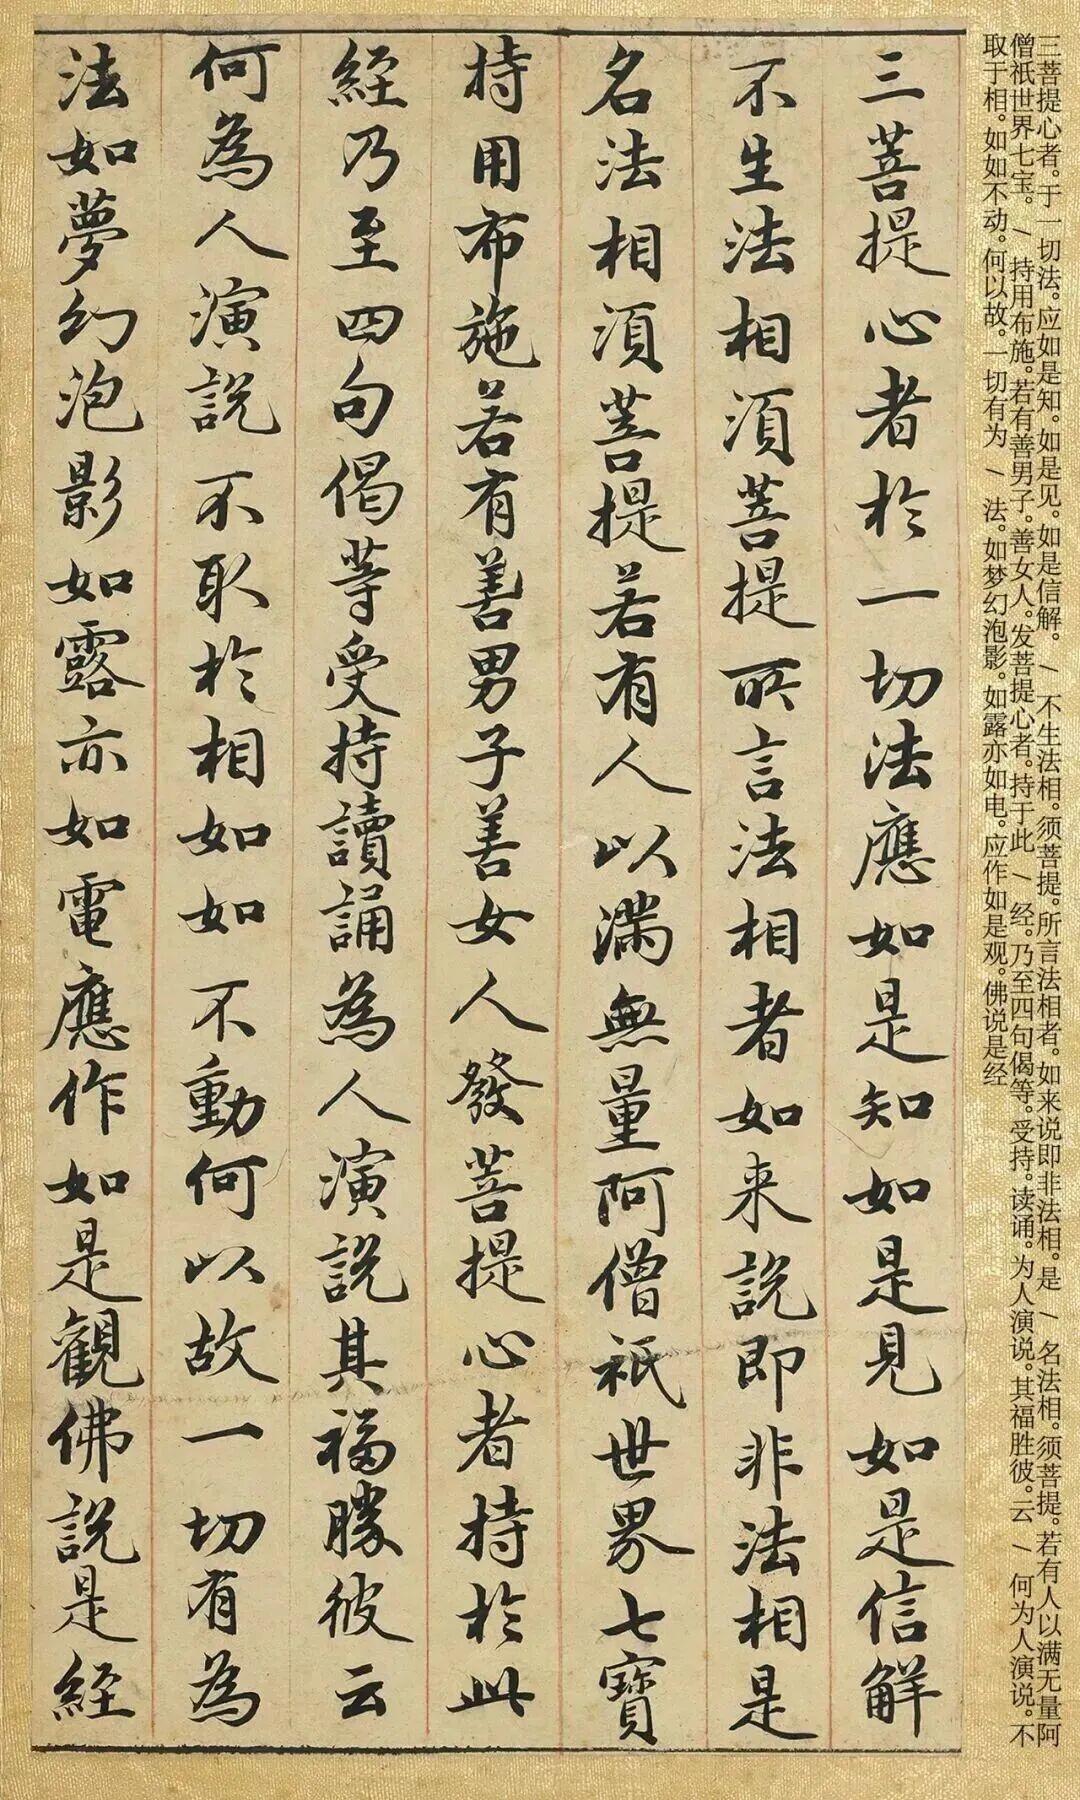 三菩提心者。于一切法。应如是知。如是见。如是信解。\不生法相。须菩提。所言法相者。如来说即非法相。是\名法相。须菩提。若有人以满无量阿
僧祇世界七宝。\持用布施。若有善男子。善女人。发菩提心者。持于此\经。乃至四句偈等。受持。读诵。为人演说。其福胜彼。云\何为人演说。不
取于相。如如不动。何以故。一切有为\法。如梦幻泡影。如露亦如电。应作如是观。佛说是经
三菩提心者於一切法應如是知如是見如是信解
不生法相須菩提所言法相者如来說即非法相是
名法相須菩提若有人以滿無量阿僧祇世界七寶
持用布施若有善男子善女人發菩提心者持於此
經乃至四句偈等受持讀誦為人演說其福勝彼云
何為人演說不取於相如如不動何以故一切有為
法如夢幻泡影如露亦如電應作如是觀佛說是經